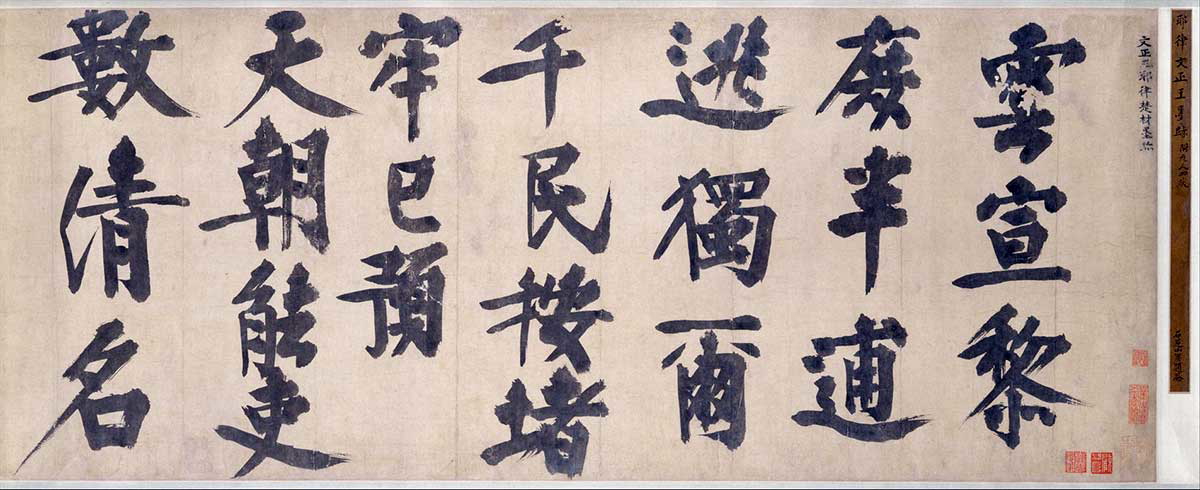 耶律文正王墨跡
文正元耶律楚材墨跡
雲宣黎
庶半逋
逃獨爾
千民按堵
牢已預
天朝能吏
數清名